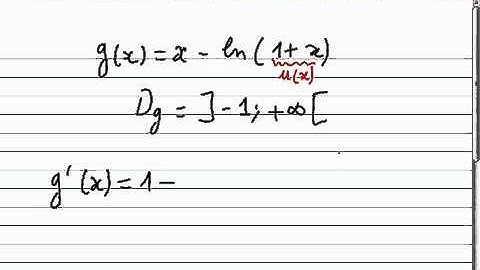 g(x) = x - ln(1 + x)
u(x)
Dg = ]-1; +∞[
g'(x) = 1 -